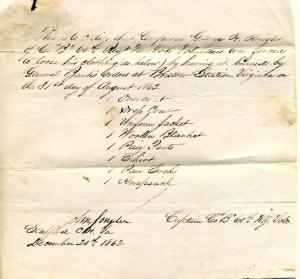 This is to certify that Corporal George W. Wright
of Co "B" 60th Regt New York Volunteers was forced
to loose his clothing (as below) by having it burned by
General Banks Orders at Bristow Station Virginia on
the 31st day of August 1862
1 Overcoat
1 Dress Coat
1 Uniform Jacket
1 Woollen Blanket
1 Pair Pants
1 Shirt
1 Pair Socks
1 Knapsack
Captain Co "B" 60th N.Y. Vols
Stafford C.H. Va
December 20th 1862